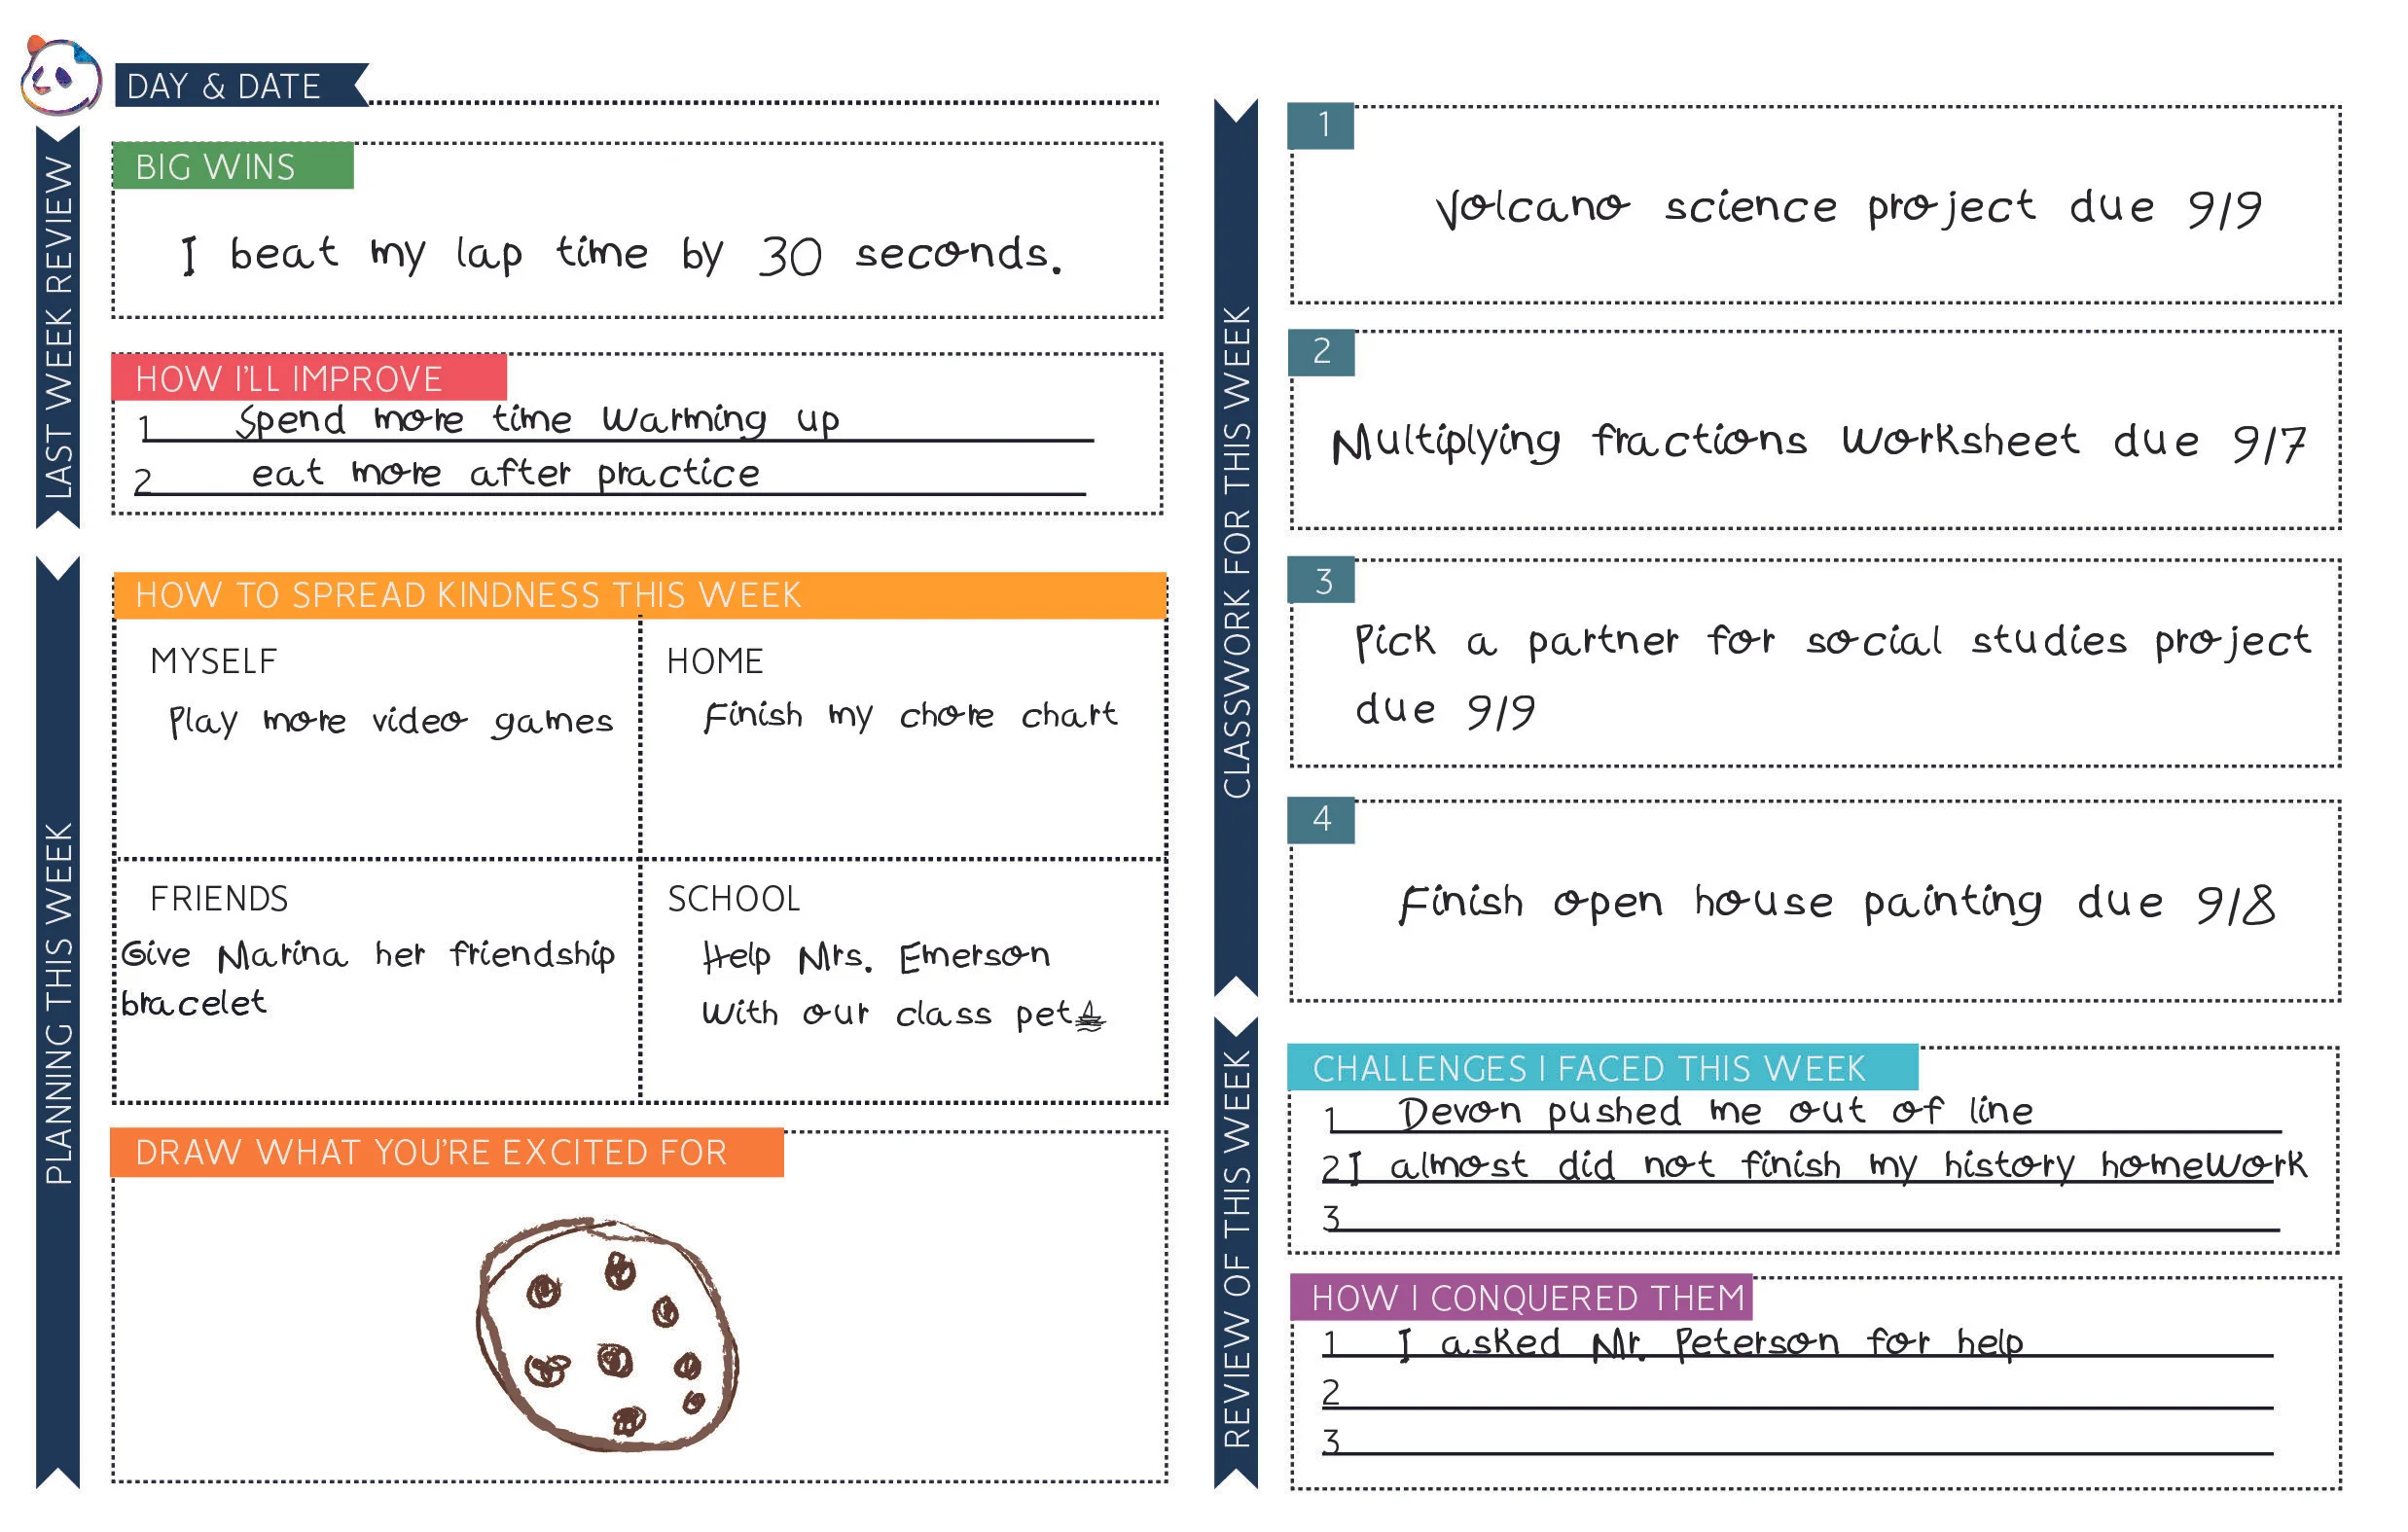 DAY & DATE
LAST WEEK REVIEW
BIG WINS
I beat my lap time by 30 seconds.
HOW I'LL IMPROVE
1 Spend more time warming up
2 eat more after practice
PLANNING THIS WEEK
HOW TO SPREAD KINDNESS THIS WEEK
MYSELF
Play more video games
HOME
Finish my chore chart
FRIENDS
Give Marina her friendship
bracelet
SCHOOL
Help Mrs. Emerson
with our class pet
DRAW WHAT YOU'RE EXCITED FOR
CLASSWORK FOR THIS WEEK
1
Volcano science project due 9/9
2
Multiplying fractions worksheet due 9/7
3
Pick a partner for social studies project
due 9/9
4
Finish open house painting due 9/8
REVIEW OF THIS WEEK
CHALLENGES I FACED THIS WEEK
1 Devon pushed me out of line
2 I almost did not finish my history homework
3
HOW I CONQUERED THEM
1 I asked Mr. Peterson for help
2
3